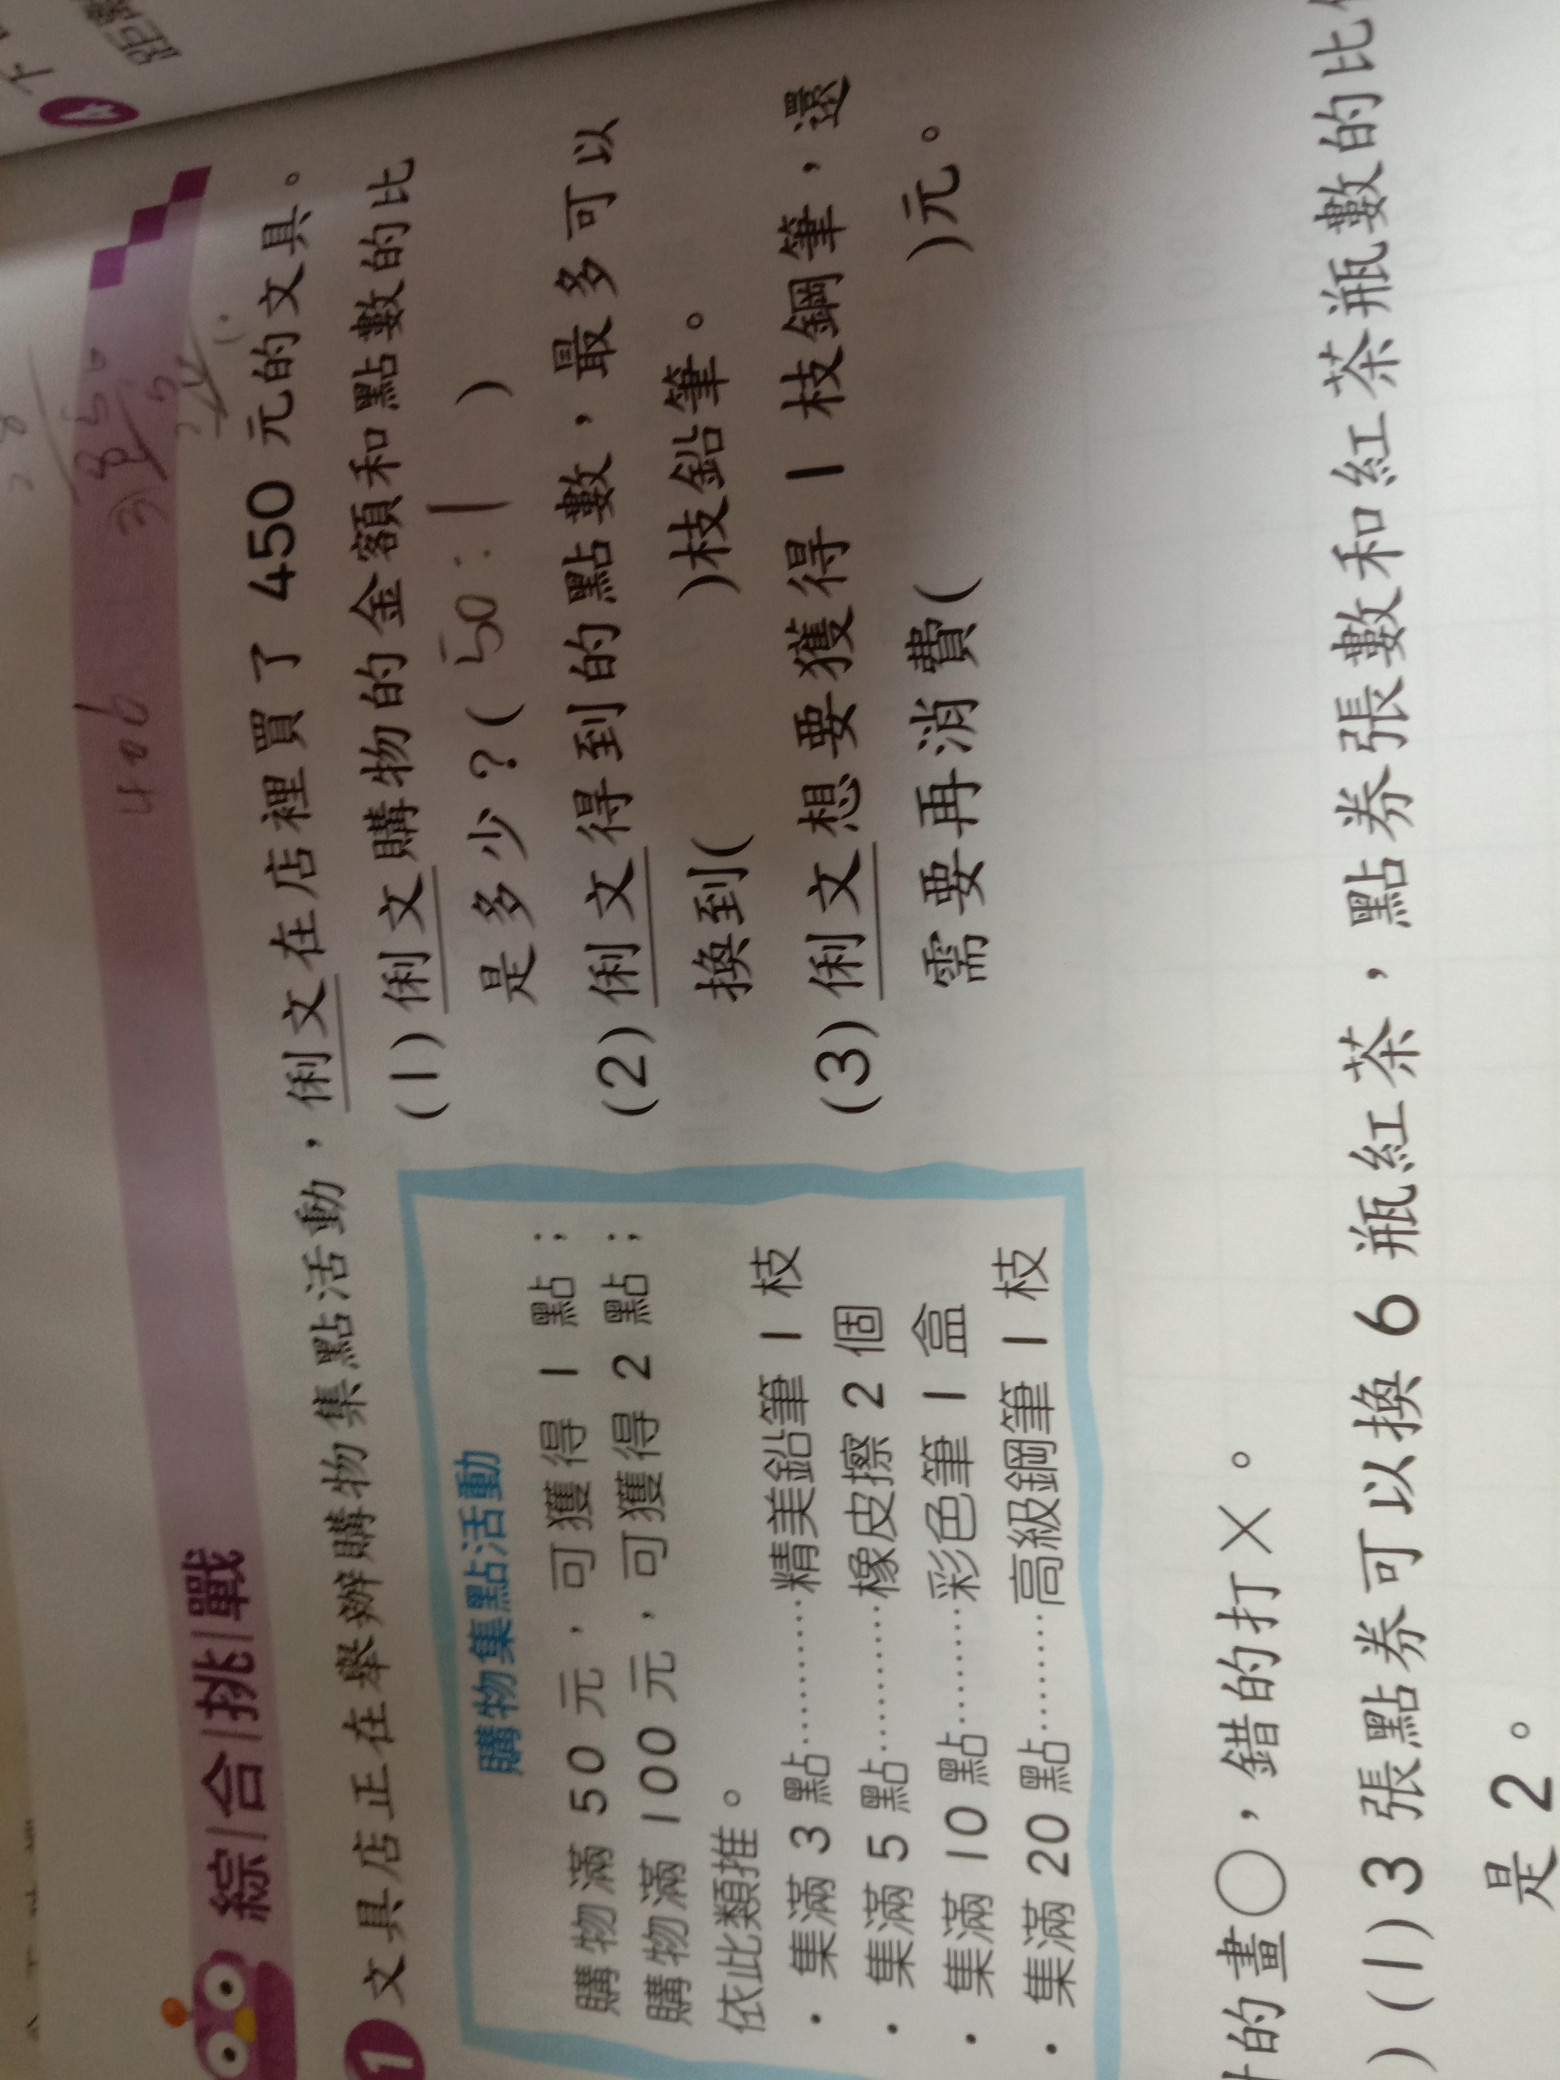 綜合挑戰
1 文具店正在舉辦購物集點活動，俐文在店裡買了 450 元的文具。
購物集點活動
購物滿 50 元，可獲得 1 點；
購物滿 100 元，可獲得 2 點；
依此類推。
・集滿 3 點…………精美鉛筆 1 枝
・集滿 5 點…………橡皮擦 2 個
・集滿 10 點………彩色筆 1 盒
・集滿 20 點………高級鋼筆 1 枝
(1) 俐文購物的金額和點數的比
是多少？( 50：1 )
(2) 俐文得到的點數，最多可以
換到( )枝鉛筆。
(3) 俐文想要獲得 1 枝鋼筆，還
需要再消費( )元。
的畫○，錯的打×。
) (1) 3 張點券可以換 6 瓶紅茶，點券張數和紅茶瓶數的比
是 2。